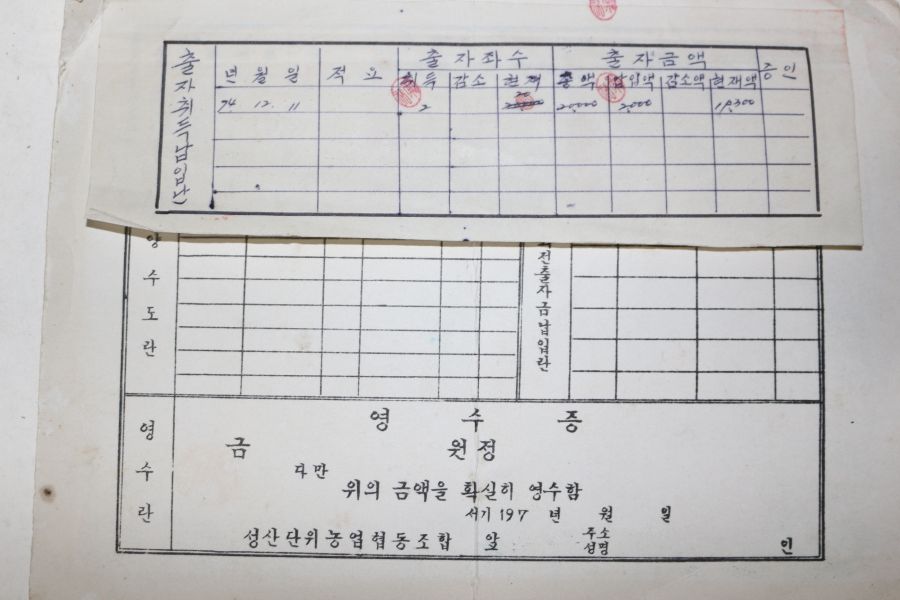 출자취득납입난
출자좌수 출자금액
년월일 적요 취득 감소 현재 총액 납입액 감소액 현재액 증인
74 12. 11 2 20 20,000 2,000
양수도란
전출자금납입란
영수란
영수증
금 원정
다만
위의 금액을 확실히 영수함
서기 197 년 월 일
성산단위농업협동조합 앞 주소
성명 인